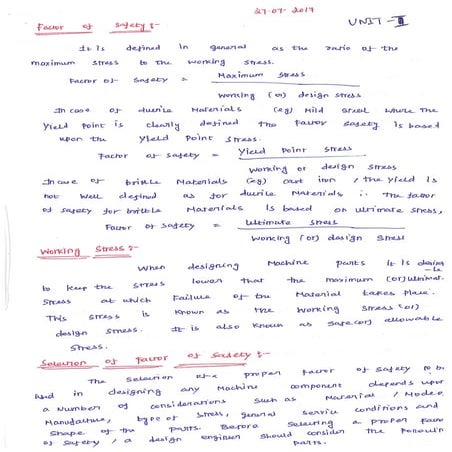 27-07-2017
UNIT-II
Factor of Safety :-
It is defined in general as the ratio of the
maximum stress to the working stress.
Factor of Safety = Maximum stress
Working (or) design stress
In case of ductile Materials (eg) Mild Steel where the
Yield Point is clearly defined the Factor Safety is based
upon the Yield Point stress.
Factor of Safety = Yield Point stress
Working or design stress
In case of brittle Materials (eg) cast iron, the yield is
not well defined as for ductile Materials ∴ The factor
of safety for brittle Materials is based on ultimate stress,
Factor of Safety = Ultimate stress
Working (or) design stress
Working Stress :-
When designing Machine parts it is desira
-ble
to keep the stress lower that the maximum (or) ultimate
stress at which Failure of the Material takes place.
This stress is known as the working stress (or)
design stress. It is also known as safe (or) allowable
stress.
Selection of Factor of Safety :-
The Selection of a proper Factor of Safety to be
in designing any Machine component depends upon
a Number of considerations such as Material, Mode
Manufacture, type of stress, general service conditions and
Shape of the parts. Before selecting a proper Factor
of Safety, a design engineer should consider the
parts.